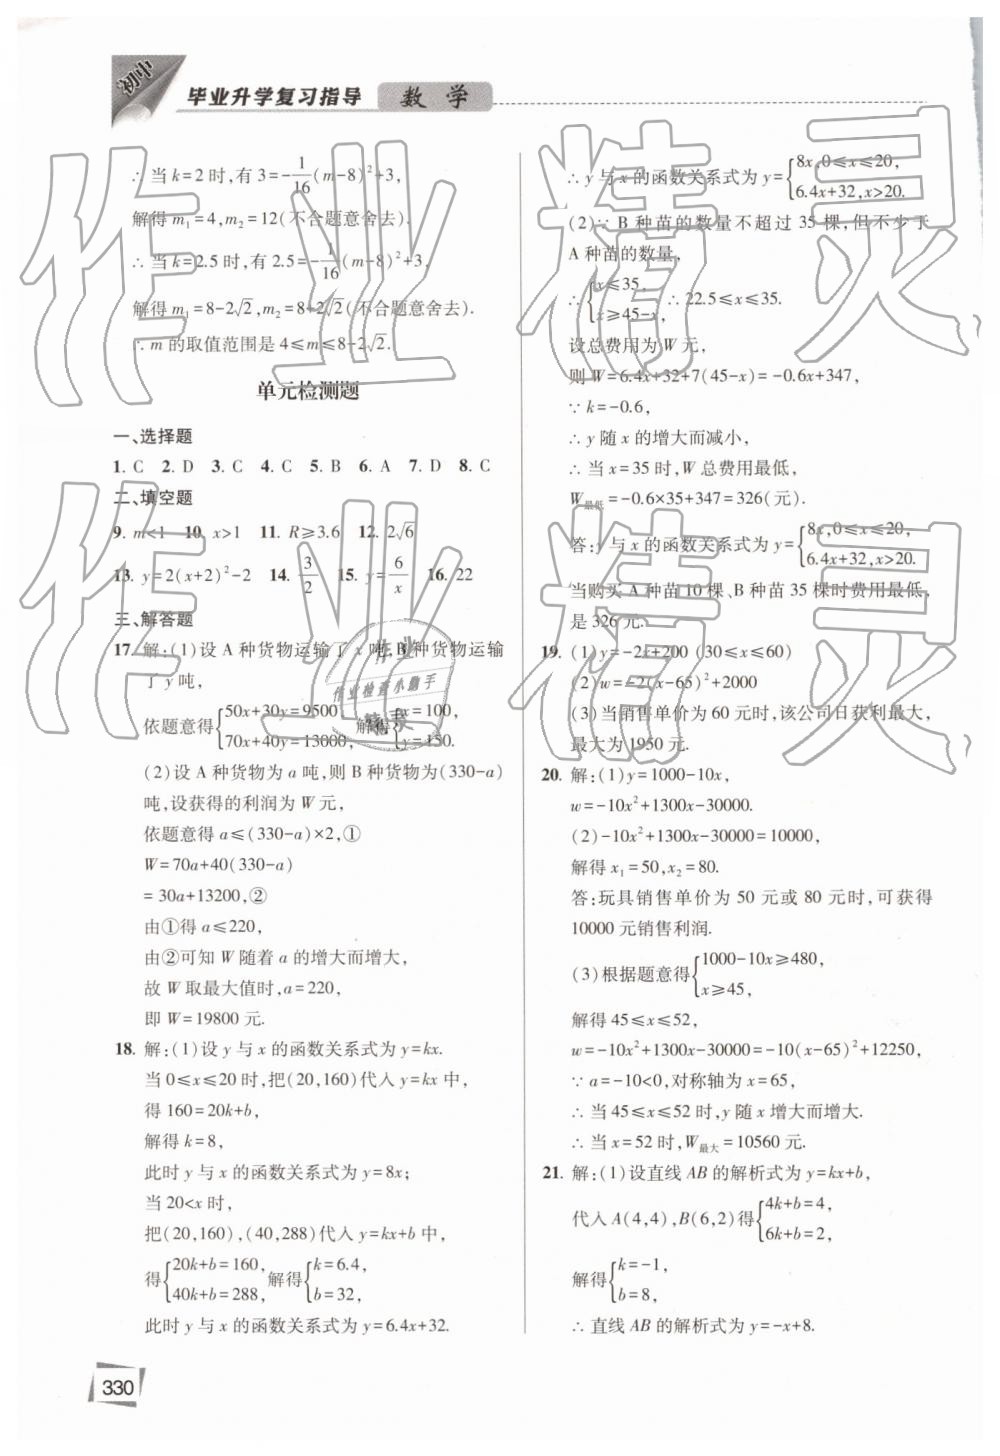 初中
毕业升学复习指导 数学
∴当k=2时,有3=-1/16(m-8)²+3,
解得m₁=4,m₂=12(不合题意舍去).
∴当k=2.5时,有2.5=-1/16(m-8)²+3,
解得m₁=8-2√2,m₂=8+2√2(不合题意舍去).
∴m的取值范围是4≤m≤8-2√2.
单元检测题
一、选择题
1. C 2. D 3. C 4. C 5. B 6. A 7. D 8. C
二、填空题
9. m<1 10. x>1 11. R≥3.6 12. 2√6
13. y=2(x+2)²-2 14. 3/2 15. y=6/x 16. 22
三、解答题
17. 解:(1)设A种货物运输了x吨,B种货物运输
了y吨,
依题意得{50x+30y=9500 70x+40y=13000, 解得{x=100, y=150.
(2)设A种货物为a吨,则B种货物为(330-a)
吨,设获得的利润为W元,
依题意得a≤(330-a)×2,①
W=70a+40(330-a)
=30a+13200,②
由①得a≤220,
由②可知W随着a的增大而增大,
故W取最大值时,a=220,
即W=19800元.
18. 解:(1)设y与x的函数关系式为y=kx.
当0≤x≤20时,把(20,160)代入y=kx中,
得160=20k+b,
解得k=8,
此时y与x的函数关系式为y=8x;
当20<x时,
把(20,160),(40,288)代入y=kx+b中,
得{20k+b=160, 40k+b=288, 解得{k=6.4, b=32,
此时y与x的函数关系式为y=6.4x+32.
∴y与x的函数关系式为y={8x,0≤x≤20, 6.4x+32,x>20.
(2)∵B种苗的数量不超过35棵,但不少于
A种苗的数量,
∴{x≤35, x≥45-x, ∴22.5≤x≤35.
设总费用为W元,
则W=6.4x+32+7(45-x)=-0.6x+347,
∵k=-0.6,
∴y随x的增大而减小,
∴当x=35时,W总费用最低,
W最低=-0.6×35+347=326(元).
答:y与x的函数关系式为y={8x,0≤x≤20, 6.4x+32,x>20.
当购买A种苗10棵、B种苗35棵时费用最低,
是326元.
19. (1)y=-2x+200 (30≤x≤60)
(2)w=-2(x-65)²+2000
(3)当销售单价为60元时,该公司日获利最大,
最大为1950元.
20. 解:(1)y=1000-10x,
w=-10x²+1300x-30000.
(2)-10x²+1300x-30000=10000,
解得x₁=50,x₂=80.
答:玩具销售单价为50元或80元时,可获得
10000元销售利润.
(3)根据题意得{1000-10x≥480, x≥45,
解得45≤x≤52,
w=-10x²+1300x-30000=-10(x-65)²+12250,
∵a=-10<0,对称轴为x=65,
∴当45≤x≤52时,y随x增大而增大.
∴当x=52时,W最大=10560元.
21. 解:(1)设直线AB的解析式为y=kx+b,
代入A(4,4),B(6,2)得{4k+b=4, 6k+b=2,
解得{k=-1, b=8,
∴直线AB的解析式为y=-x+8.
330
作业精灵
作业精灵
作业
作业检查小助手